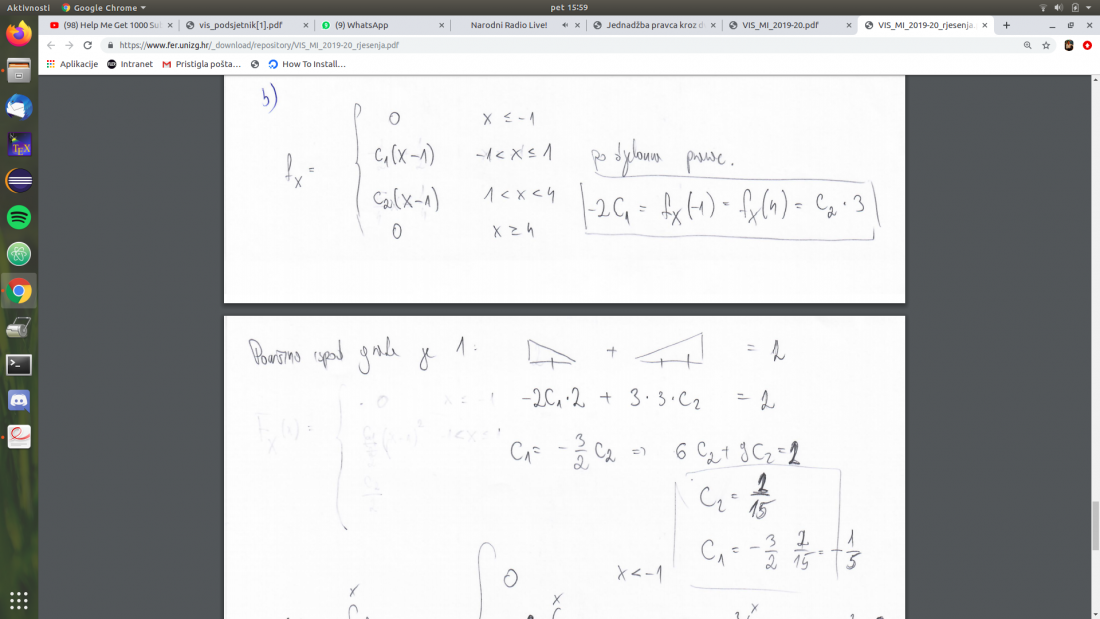 Aktivnosti Google Chrome pet 15:59
(98) Help Me Get 1000 Sul vis_podsjetnik[1].pdf (9) WhatsApp Narodni Radio Live! Jednadžba pravca kroz d VIS_MI_2019-20.pdf VIS_MI_2019-20_rjesenja.
https://www.fer.unizg.hr/_download/repository/VIS_MI_2019-20_rjesenja.pdf
Aplikacije Intranet Pristigla pošta… How To Install…
b)
0 x ≤ -1
C₁(x-1) -1 < x ≤ 1
fₓ =
C₂(x-1) 1 < x < 4
0 x ≥ 4
-2C₁ = fₓ(-1) = fₓ(4) = C₂ · 3
je 1. + = 2
-2C₁·2 + 3·3·C₂ = 2
C₁ = -3/2 C₂ => 6C₂ + 9C₂ = 2
C₂ = 2/15
C₁ = -3/2 2/15 = -1/5
0 x < -1